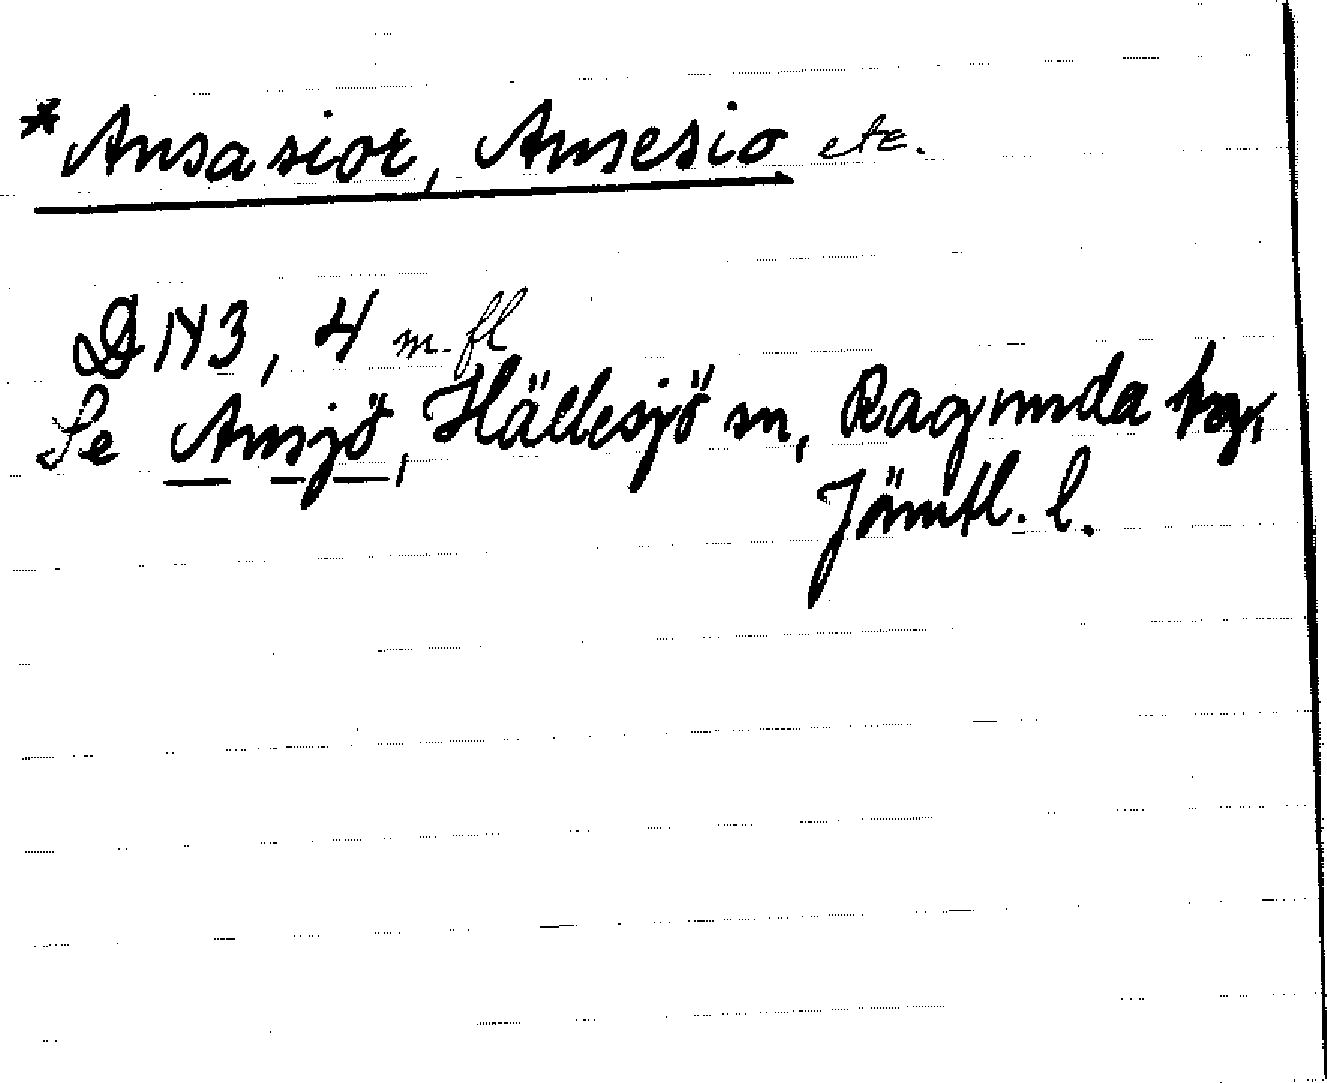 *Ansasior, Ansesio etc.
DN3, 4 m. fl
Se Ansjö, Hällesjö sn, Ragunda tsg,
Jämtl. l.